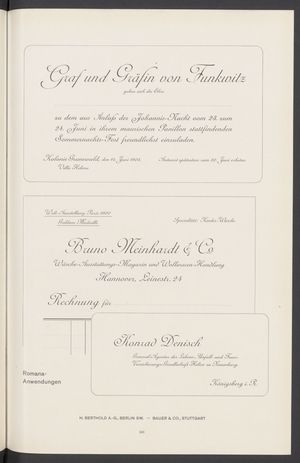 Graf und Gräfin von Funkwitz
geben sich die Ehre
zu dem aus Anlaß der Johannis-Nacht vom 23. zum
24. Juni in ihrem maurischen Pavillon stattfindenden
Sommernachts-Fest freundlichst einzuladen.
Kolonie Grunewald, den 14. Juni 1904.
Villa Helene.
Antwort erbeten
Welt-Ausstellung Paris 1900
Goldene Medaille
Spezialität: Kinder-Wäsche.
Bruno Meinhardt & Co
Wäsche-Ausstattungs-Magazin und Wollwaren-Handlung
Hannover, Leinestr. 24
Rechnung für
Konrad Denisch
General-Agentur der Lebens-, Unfall- und Feuer-
Versicherungs-Gesellschaft
Königsberg i. P.
Romana-
Anwendungen
H. BERTHOLD A.-G., BERLIN SW. — BAUER & CO., STUTTGART